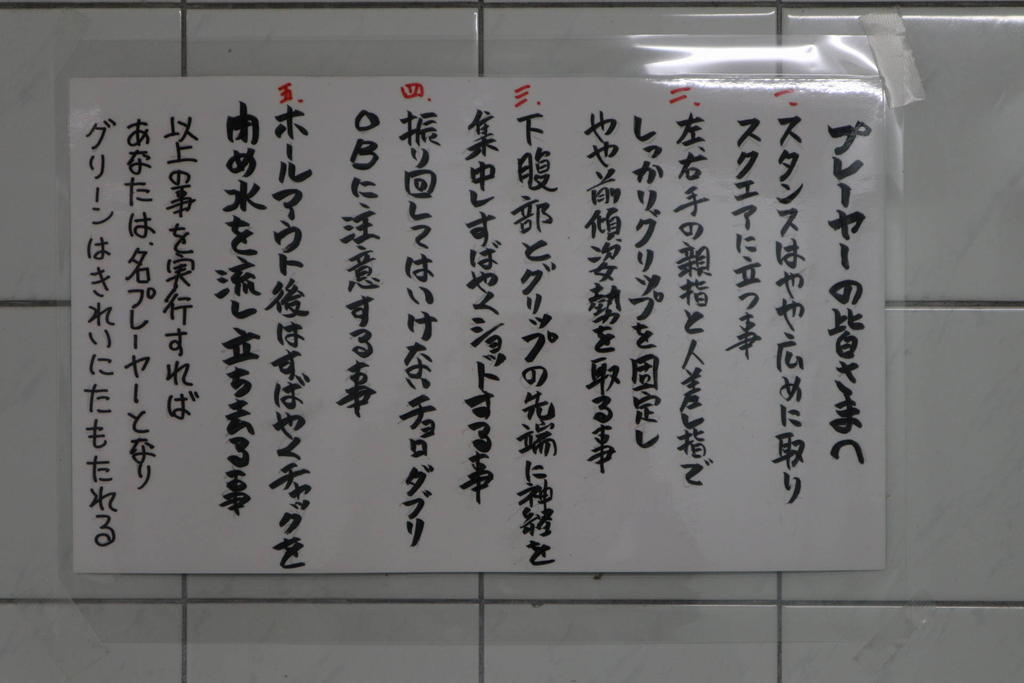 プレーヤーの皆さまへ
一、スタンスはやや広めに取り
スクエアに立つ事
二、左、右手の親指と人差し指で
しっかりグリップを固定し
やや前傾姿勢を取る事
三、下腹部とグリップの先端に神経を
集中しすばやくショットする事
四、振り回してはいけないチョロダブリ
OBに注意する事
五、ホールアウト後はすばやくチャックを
閉め水を流し立ち去る事
以上の事を実行すれば
あなたは、名プレーヤーとなり
グリーンはきれいにたもたれる